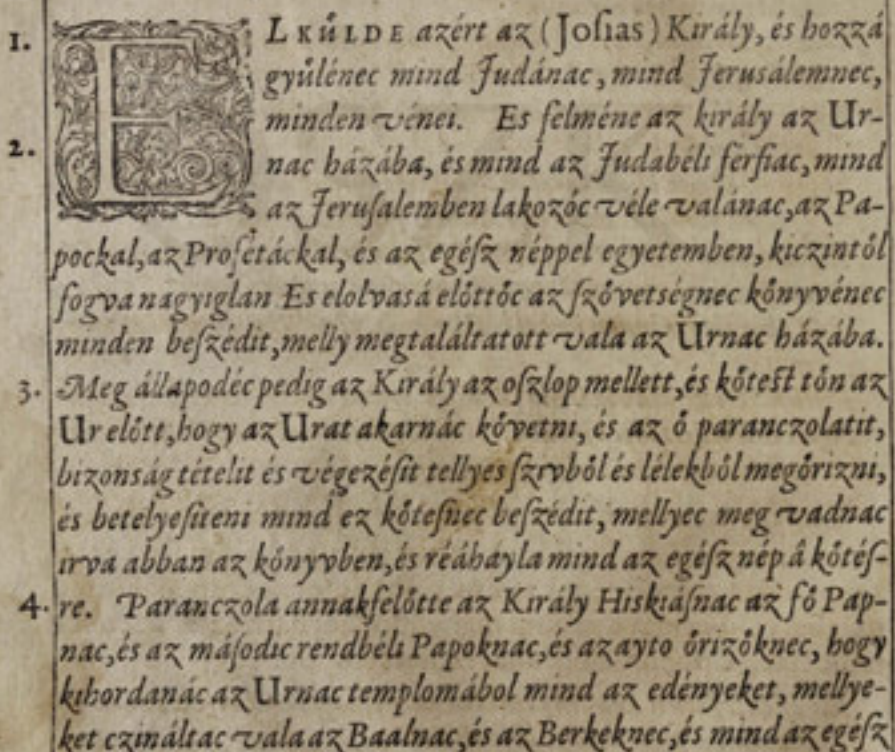 1. ELKŰLDE azért az (Joſias) Király, és hozzá
gyűlénec mind Judánac, mind Jerusálemnec,
minden vénei. Es felméne az király az Ur-
2. nac házába, és mind az Judabéli férfiac, mind
az Jeruſalemben lakozóc véle valánac, az Pa-
pockal, az Profétáckal, és az egéſz néppel egyetemben, kiczintől
fogva nagyiglan Es elolvasá előttőc az ſzővetségnec kőnyvénec
minden beſzédit, melly megtaláltatott vala az Urnac házába.
3. Meg állapodéc pedig az Király az oſzlop mellett, és kőteſt tőn az
Ur előtt, hogy az Urat akarnác kővetni, és az ő paranczolatit,
bizonság tételit és végezéſit tellyes ſzivből és lélekből megőrizni,
és betelyeſiteni mind ez kőteſnec beſzédit, mellyec meg vadnac
irva abban az kőnyvben, és réáhayla mind az egéſz nép â kőtéſ-
4. re. Paranczola annakfelőtte az Király Hiskiáſnac az fő Pap-
nac, és az máſodic rendbéli Papoknac, és az ayto őrizőknec, hogy
kihordanác az Urnac templomábol mind az edényeket, mellye-
ket czináltac vala az Baalnac, és az Berkeknec, és mind az egéſz